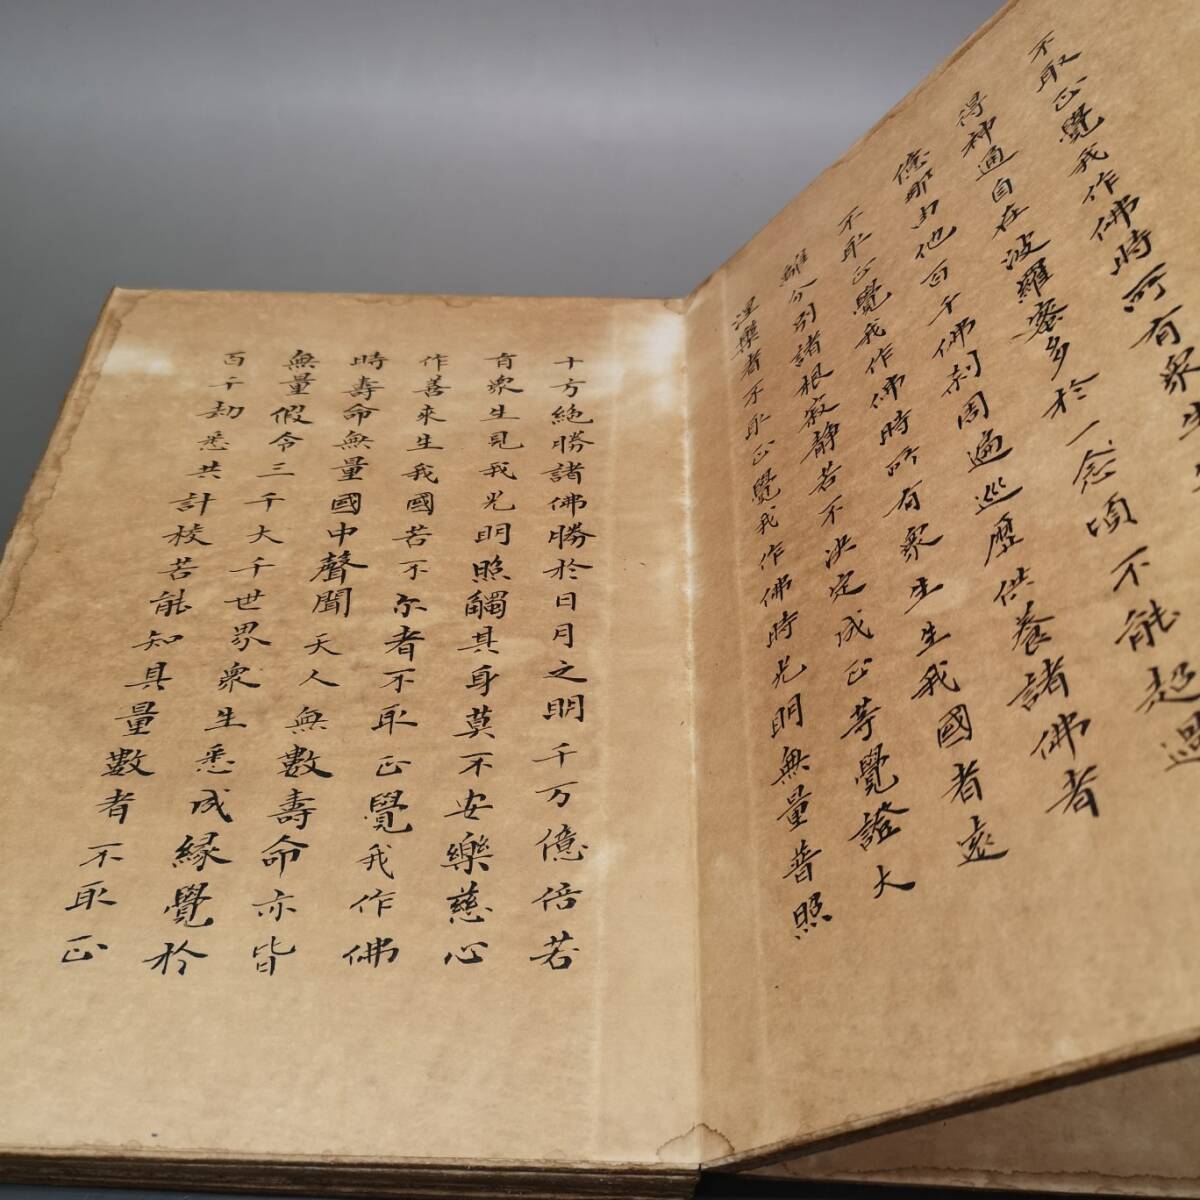 不取正覺我作佛時所有衆生生
得神通自在波羅蜜多於一念頃不能超過
億那由他百千佛刹周遍巡歷供養諸佛者
不取正覺我作佛時所有衆生生我國者遠
離分別諸根寂静若不決定成正等覺證大
涅槃者不取正覺我作佛時光明無量普照
十方絶勝諸佛勝於日月之明千万億倍若
有衆生見我光明照觸其身莫不安樂慈心
作善來生我國若不尒者不取正覺我作佛
時壽命無量國中聲聞天人無數壽命亦皆
無量假令三千大千世界衆生悉成緣覺於
百千劫悉共計校若能知其量數者不取正